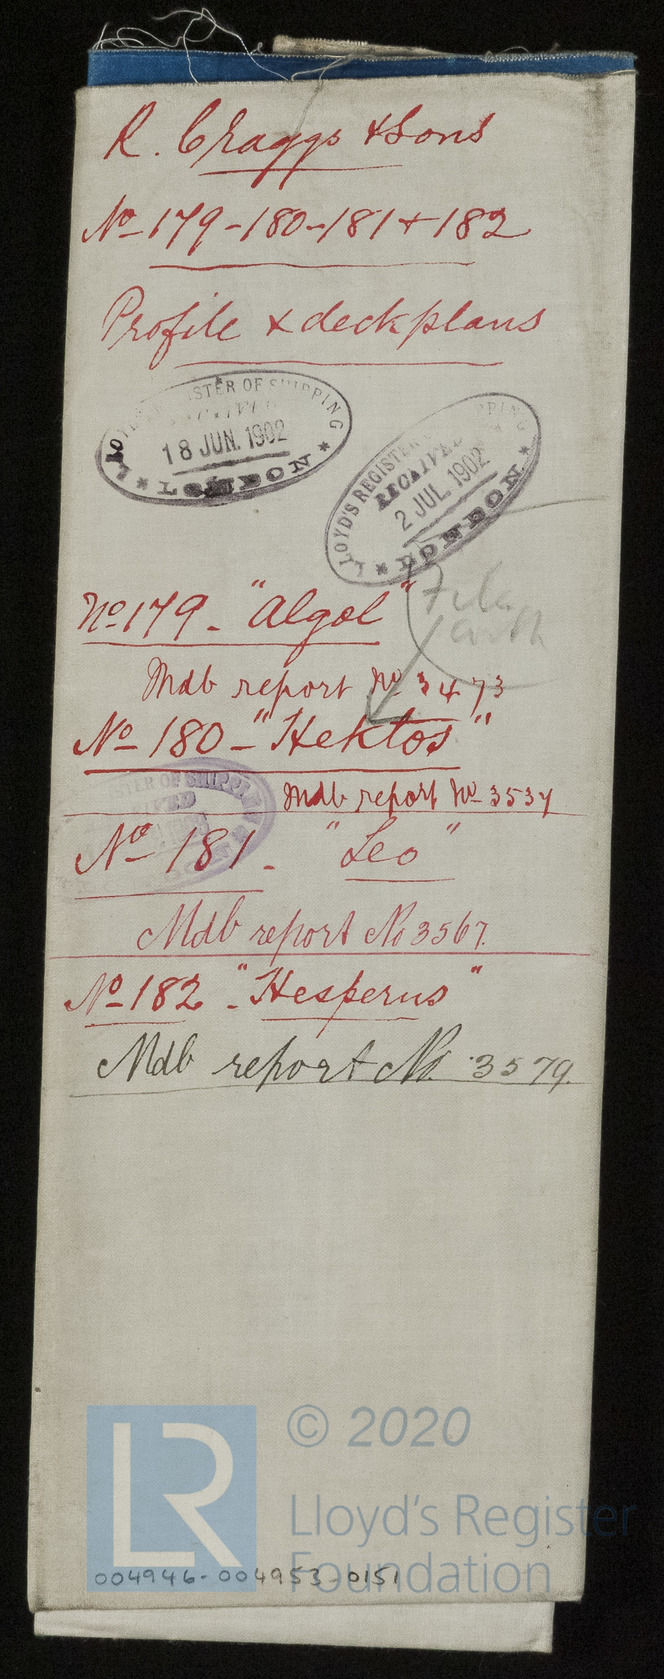 R. Craggs & Sons
No 179-180-181 + 182
Profile & deck plans
LLOYD'S REGISTER OF SHIPPING
RECEIVED
18 JUN. 1902
LONDON
LLOYD'S REGISTER SHIPPING
RECEIVED
2 JUL. 1902
LONDON
No 179 - "Algol"
File with
Mdb report No 3473
No 180 - "Hektos"
REGISTER OF SHIPPING
Mdb report No 3537
No 181 - "Leo"
Mdb report No 3567.
No 182 - "Hesperus"
Mdb report No. 3579.
LR
© 2020
Lloyd's Register
Foundation
004946-004953-0151